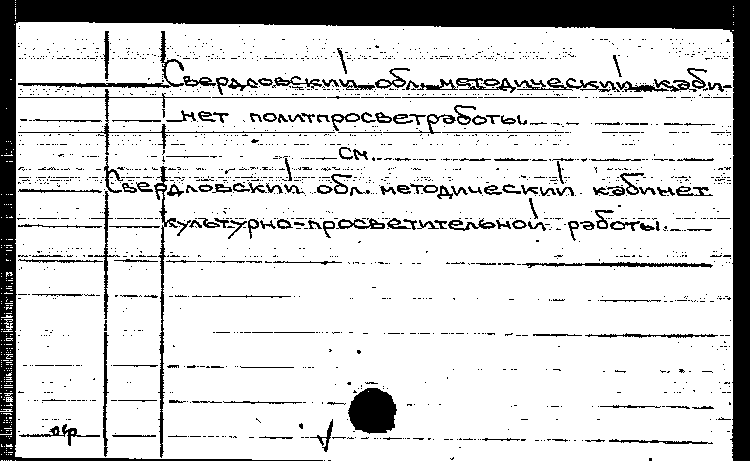 Свердловский обл. методический каби-
нет политпросветработы.
см.
Свердловский обл. методический кабинет
культурно-просветительной работы.